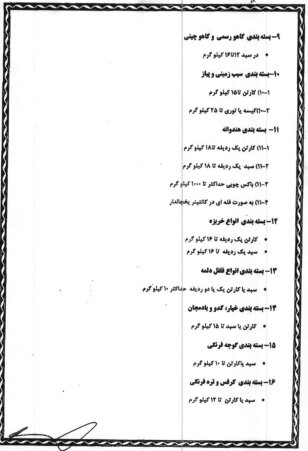 ۹- بسته بندی کاهو رسمی و کاهو چینی
• در سبد ۱۲تا۱۶ کیلو گرم
۱۰-بسته بندی سیب زمینی و پیاز
۱-۱۰) کارتن تا۱۵ کیلو گرم
۲-۱۰)کیسه یا توری تا ۲۵ کیلو گرم
۱۱- بسته بندی هندوانه
۱-۱۱) کارتن یک ردیفه تا۱۸ کیلو گرم
۲-۱۱) سبد یک ردیفه تا ۱۸ کیلو گرم
۳-۱۱) باکس چوبی حداکثر تا ۱۰۰۰ کیلو گرم
۴-۱۱) به صورت فله ای در کانتینر یخچالدار
۱۲- بسته بندی انواع خربزه
• کارتن یک ردیفه تا ۱۶ کیلو گرم
• سبد یک ردیفه تا ۱۶ کیلو گرم
۱۳- بسته بندی انواع فلفل دلمه
• سبد یا کارتن یک یا دو ردیفه حداکثر ۱۰ کیلو گرم
۱۴- بسته بندی خیار، کدو و بادمجان
• کارتن یا سبد تا ۱۵ کیلو گرم
۱۵- بسته بندی گوجه فرنگی
• سبد یاکارتن تا ۱۰ کیلو گرم
۱۶- بسته بندی کرفس و تره فرنگی
• سبد یا کارتن تا ۱۲ کیلو گرم